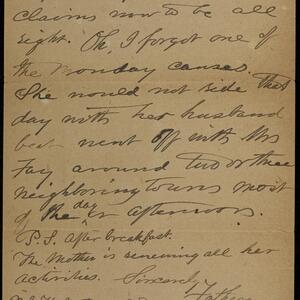 claims now to be all
right. Oh, I forgot one of
the Monday causes.
She would not side that
day with her husband
but went off with Mrs
Fay around two or three
neighboring towns most
of the day or afternoon.
P.S. After breakfast.
The Mother is renewing all her
activities. Sincerely,
Father